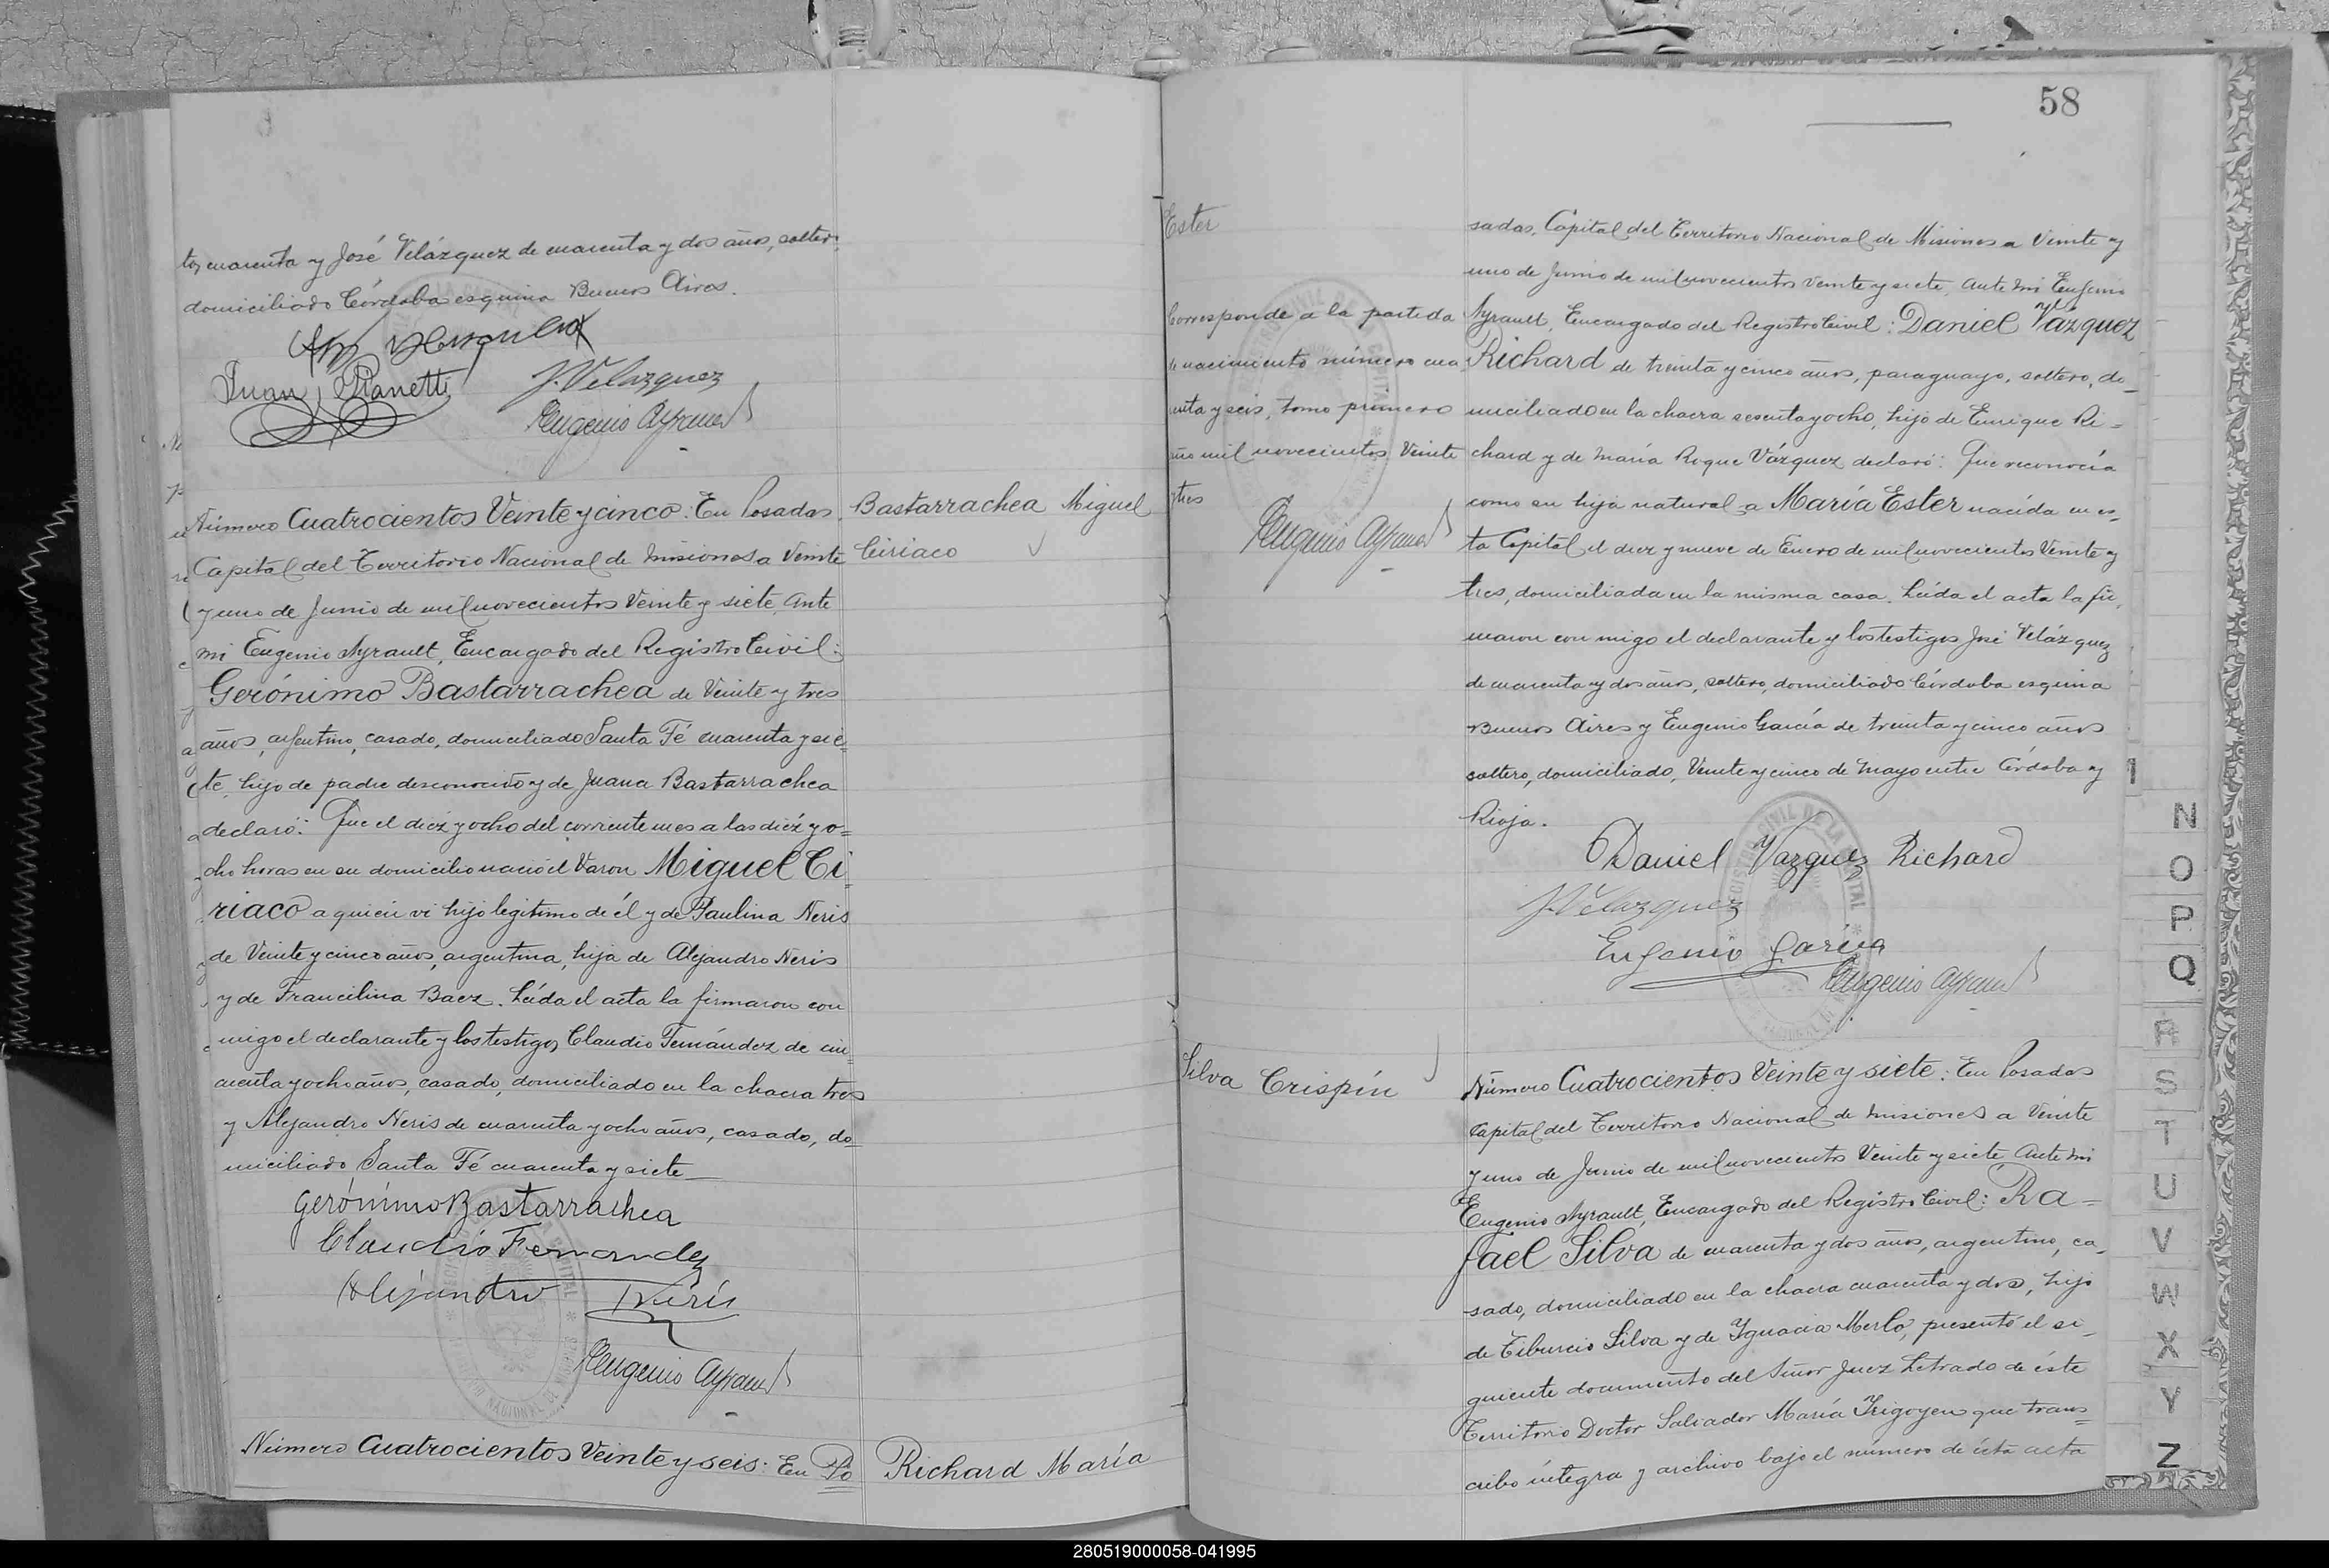 58
to, cuarenta y José Velázquez de cuarenta y dos años, soltero,
domiciliado Córdoba esquina Buenos Aires.
Juan Pianetti
J. Velazquez
Eugenio Ayrault
Número Cuatrocientos Veinte y cinco: En Posadas
Capital del Territorio Nacional de Misiones a Veinte
y uno de Junio de mil novecientos Veinte y siete, Ante
mi Eugenio Ayrault, Encargado del Registro Civil:
Gerónimo Bastarrachea de Veinte y tres
años, argentino, casado, domiciliado Santa Fé cuarenta y sie=
te, hijo de padre desconocido y de Juana Bastarrachea
declaró: Que el diez y ocho del corriente mes a las diez y o=
cho horas en su domicilio nació el Varon Miguel Ci-
riaco a quien vi hijo legitimo de él y de Paulina Neris
de Veinte y cinco años, argentina, hija de Alejandro Neris
y de Francilina Baez. Leída el acta la firmaron con
migo el declarante y los testigos Claudio Fernández de cin-
cuenta y ocho años, casado, domiciliado en la chacra tres
y Alejandro Neris de cuarenta y ocho años, casado, do-
miciliado Santa Fé cuarenta y siete
Bastarrachea Miguel
Ciriaco
Gerónimo Bastarrachea
Claudio Fernandez
Alejandro Neris
Eugenio Ayrault
Número Cuatrocientos Veinte y seis: En Po
Richard María
Ester
Corresponde a la partida
de nacimiento número cua
renta y seis, tomo primero
año mil novecientos Veinte
y tres
Eugenio Ayrault
sadas, Capital del Territorio Nacional de Misiones a Veinte y
uno de Junio de mil novecientos Veinte y siete, Ante mi Eugenio
Ayrault, Encargado del Registro Civil: Daniel Vázquez
Richard de treinta y cinco años, paraguayo, soltero, do-
miciliado en la chacra sesenta y ocho, hijo de Enrique Ri=
chard y de María Roque Vázquez declaró: Que reconocía
como su hija natural a María Ester nacida en es-
ta Capital el diez y nueve de Enero de mil novecientos Veinte y
tres, domiciliada en la misma casa. Leída el acta la fir-
maron con migo el declarante y los testigos José Velázquez
de cuarenta y dos años, soltero, domiciliado Córdoba esquina
Buenos Aires y Eugenio García de treinta y cinco años
soltero, domiciliado, Veinte y cinco de Mayo entre Córdoba y
Rioja.
Daniel Vazquez Richard
J. Velazquez
Eugenio García
Eugenio Ayrault
Silva Crispín
Número Cuatrocientos Veinte y siete: En Posadas
Capital del Territorio Nacional de Misiones a Veinte
y uno de Junio de mil novecientos Veinte y siete Ante mi
Eugenio Ayrault, Encargado del Registro Civil: Ra=
fael Silva de cuarenta y dos años, argentino, ca-
sado, domiciliado en la chacra cuarenta y dos, hijo
de Tiburcio Silva y de Ygnacia Merlo, presentó el si-
guiente documento del Señor Juez Letrado de éste
Territorio Doctor Salvador María Yrigoyen que trans=
cribo íntegra y archivo bajo el número de ésta acta
N
O
P
Q
R
S
T
U
V
W
X
Y
Z
280519000058-041995